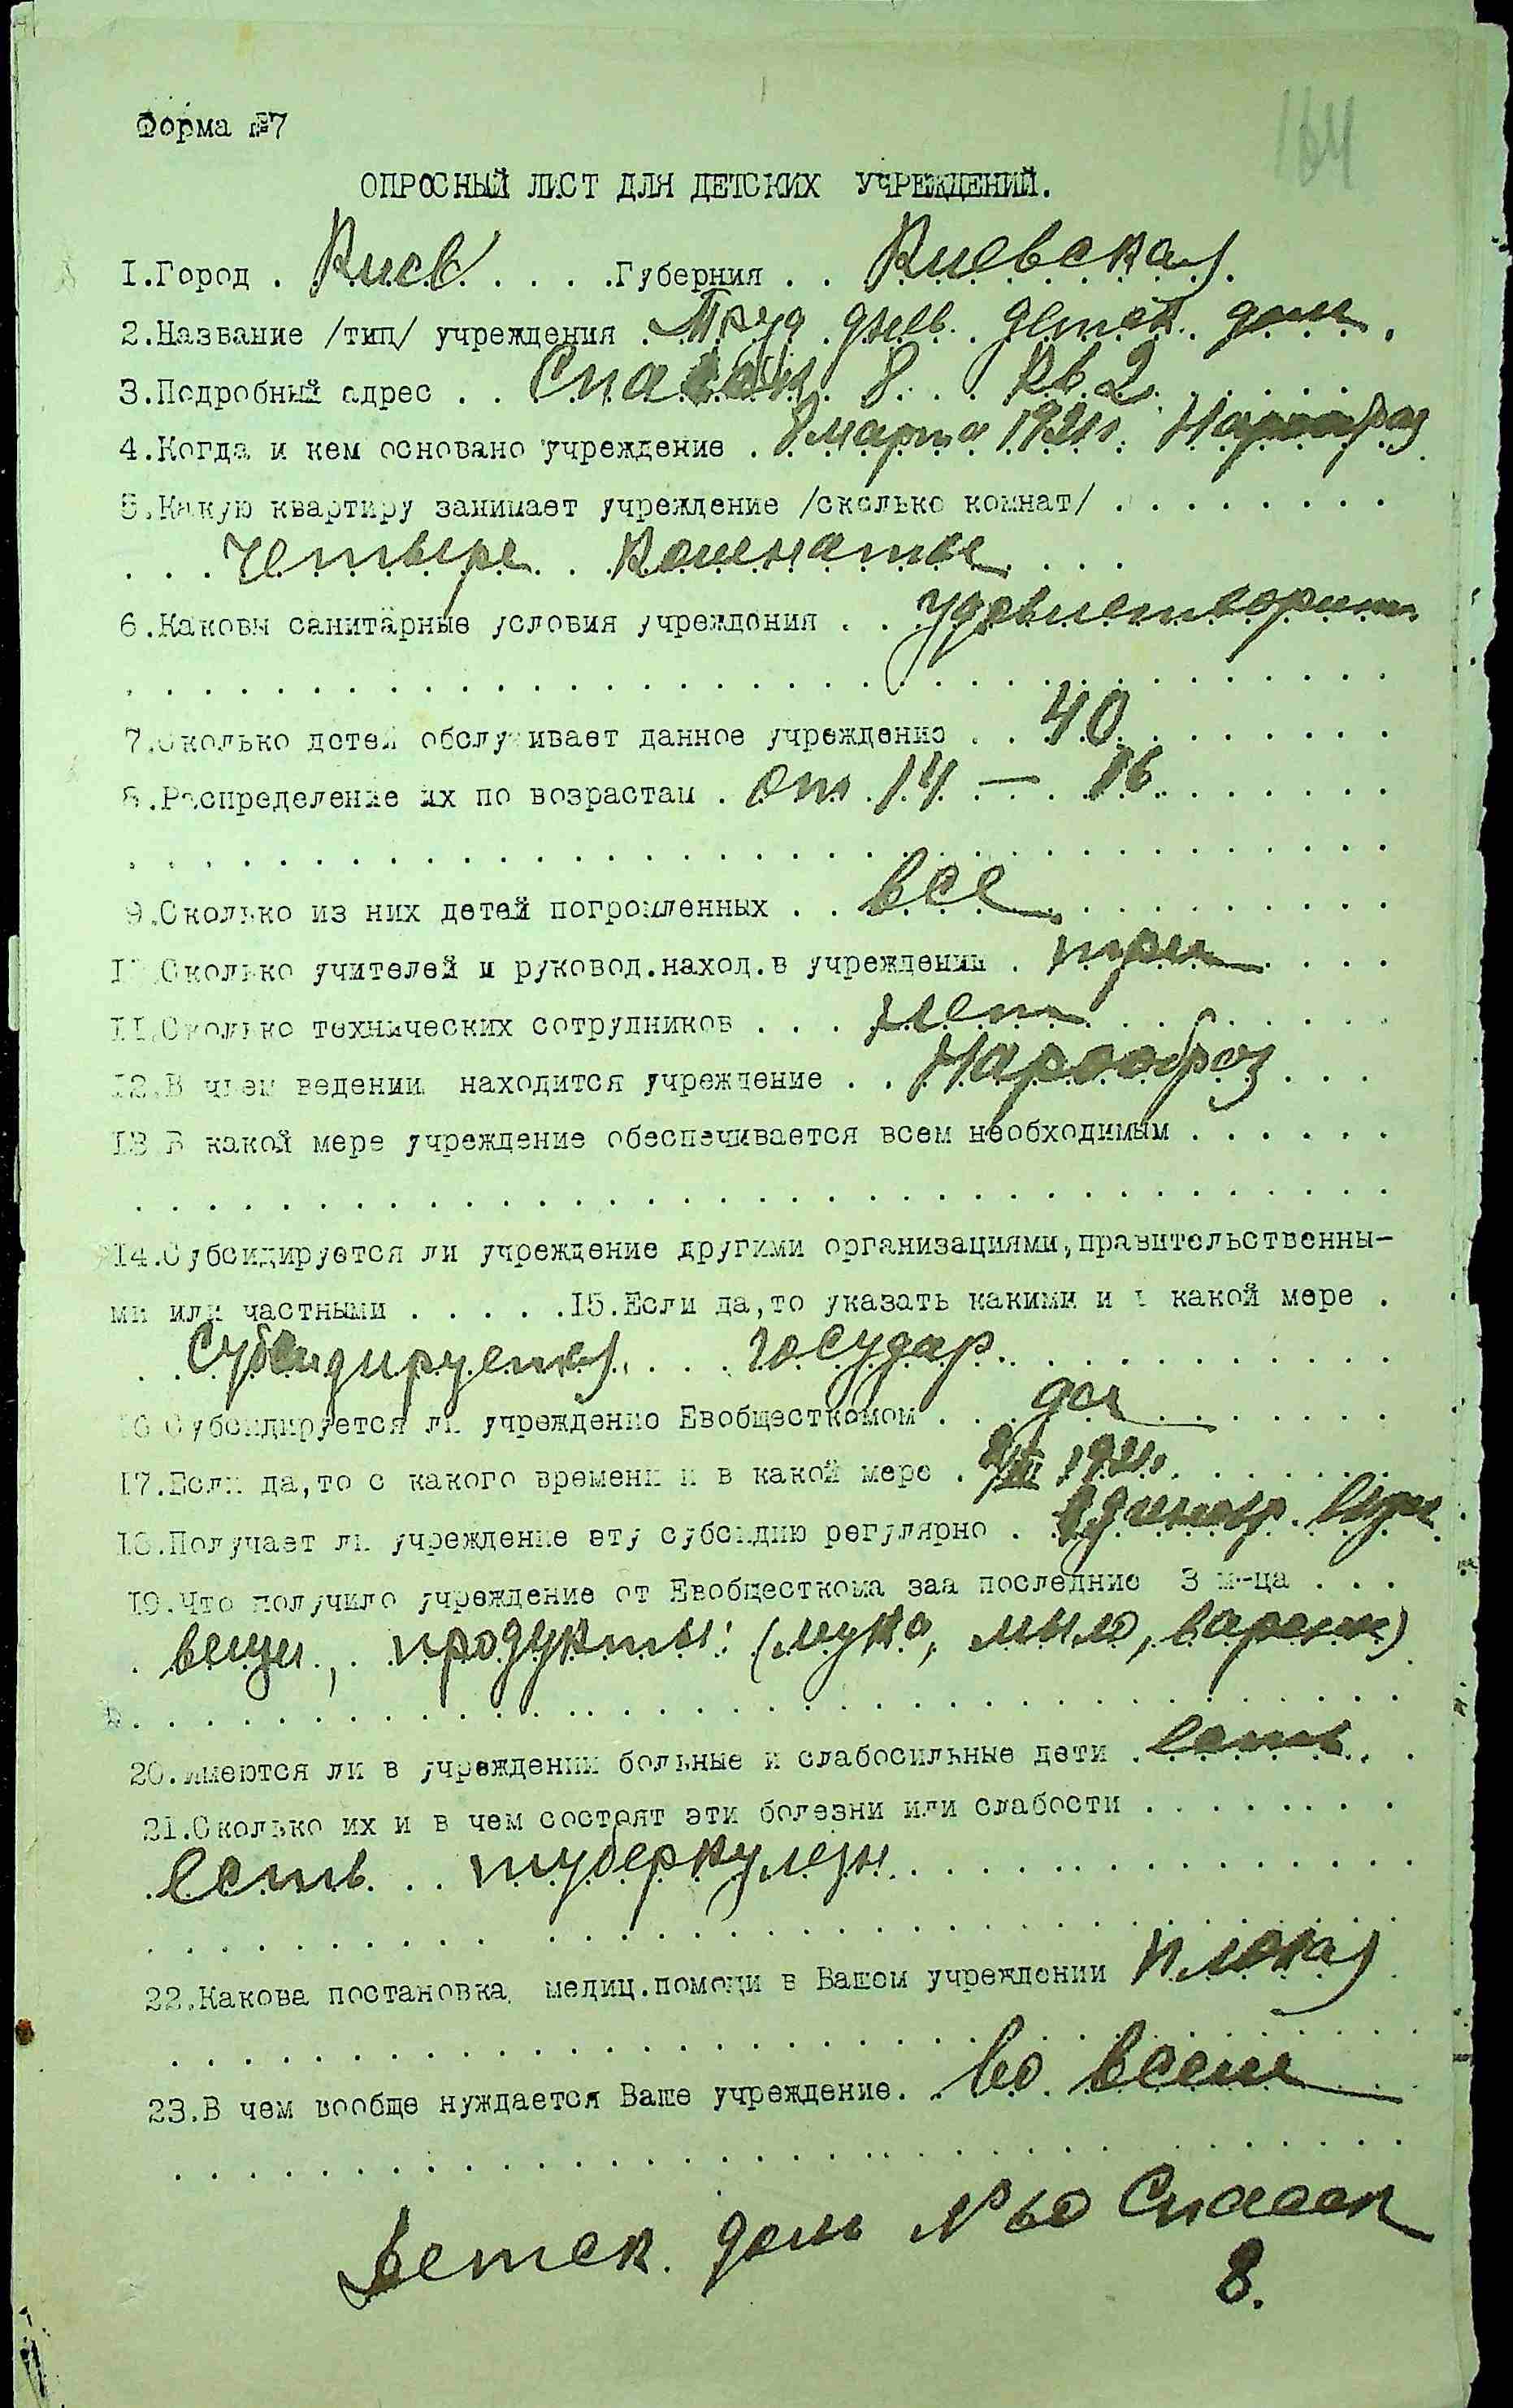 164
Форма №7
ОПРОСНЫЙ ЛИСТ ДЛЯ ДЕТСКИХ УЧРЕЖДЕНИЙ.
1.Город . Киев . . . .Губерния . . Киевская.
2.Название /тип/ учреждения . Труд детск. дом.
3.Подробный адрес . . Спасск 8. . . кв 2. . . . . .
4.Когда и кем основано учреждение . 8 марта 1921г. Наробраз
5.Какую квартиру занимает учреждение /сколько комнат/ . . . . . . . .
. . . Четыре . . Комнаты . . .
6.Каковы санитарные условия учреждения . . удовлетворит
7.Сколько детей обслуживает данное учреждение . . 40 . . . . . . .
8.Распределение их по возрастам . от 14 — 16 . . . . . . .
9.Сколько из них детей погромленных . . все . . . . . . . . .
10.Сколько учителей и руковод.наход.в учреждении . три . . . .
11.Сколько технических сотрудников . . . нет . . . . . . . .
12.В чьем ведении находится учреждение . . Нарообраз . . .
13.В какой мере учреждение обеспечивается всем необходимым . . . . . .
14.Субсидируется ли учреждение другими организациями,правительственны-
ми или частными . . . . .15.Если да,то указать какими и в какой мере .
. . Субсидируется . . . государ. . . . . . . . . . .
16.Субсидируется ли учреждение Евобщесткомом . . . да . . . . . .
17.Если да,то с какого времени и в какой мере . 1921г. . . . . .
18.Получает ли учреждение эту субсидию регулярно .
19.Что получило учреждение от Евобщесткома заа последние 3 м-ца . . .
. вещи, . продукты: (мука, мыло, )
20.Имеются ли в учреждении больные и слабосильные дети . есть . .
21.Сколько их и в чем состоят эти болезни или слабости . . . . . . . .
. есть . . . туберкулезн. . . . . . . . . . . . .
22.Какова постановка медиц.помощи в Вашем учреждении плохая
23.В чем вообще нуждается Ваше учреждение. . во всем
Детск. дом № 60 Спасск
8.